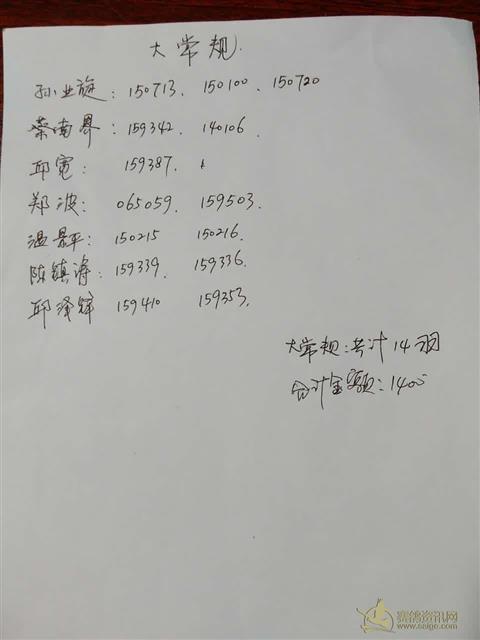 大常规.
孙业旋: 150713. 150100. 150720
蔡南界: 159342. 140106.
邱宽: 159387.
郑波: 065059. 159503.
温景平: 150215 150216.
陈镇涛: 159339. 159336.
邱泽锌 159410 159353.
大常规:共计14羽
合计金额:1400
赛鸽资讯网
www.saige.com